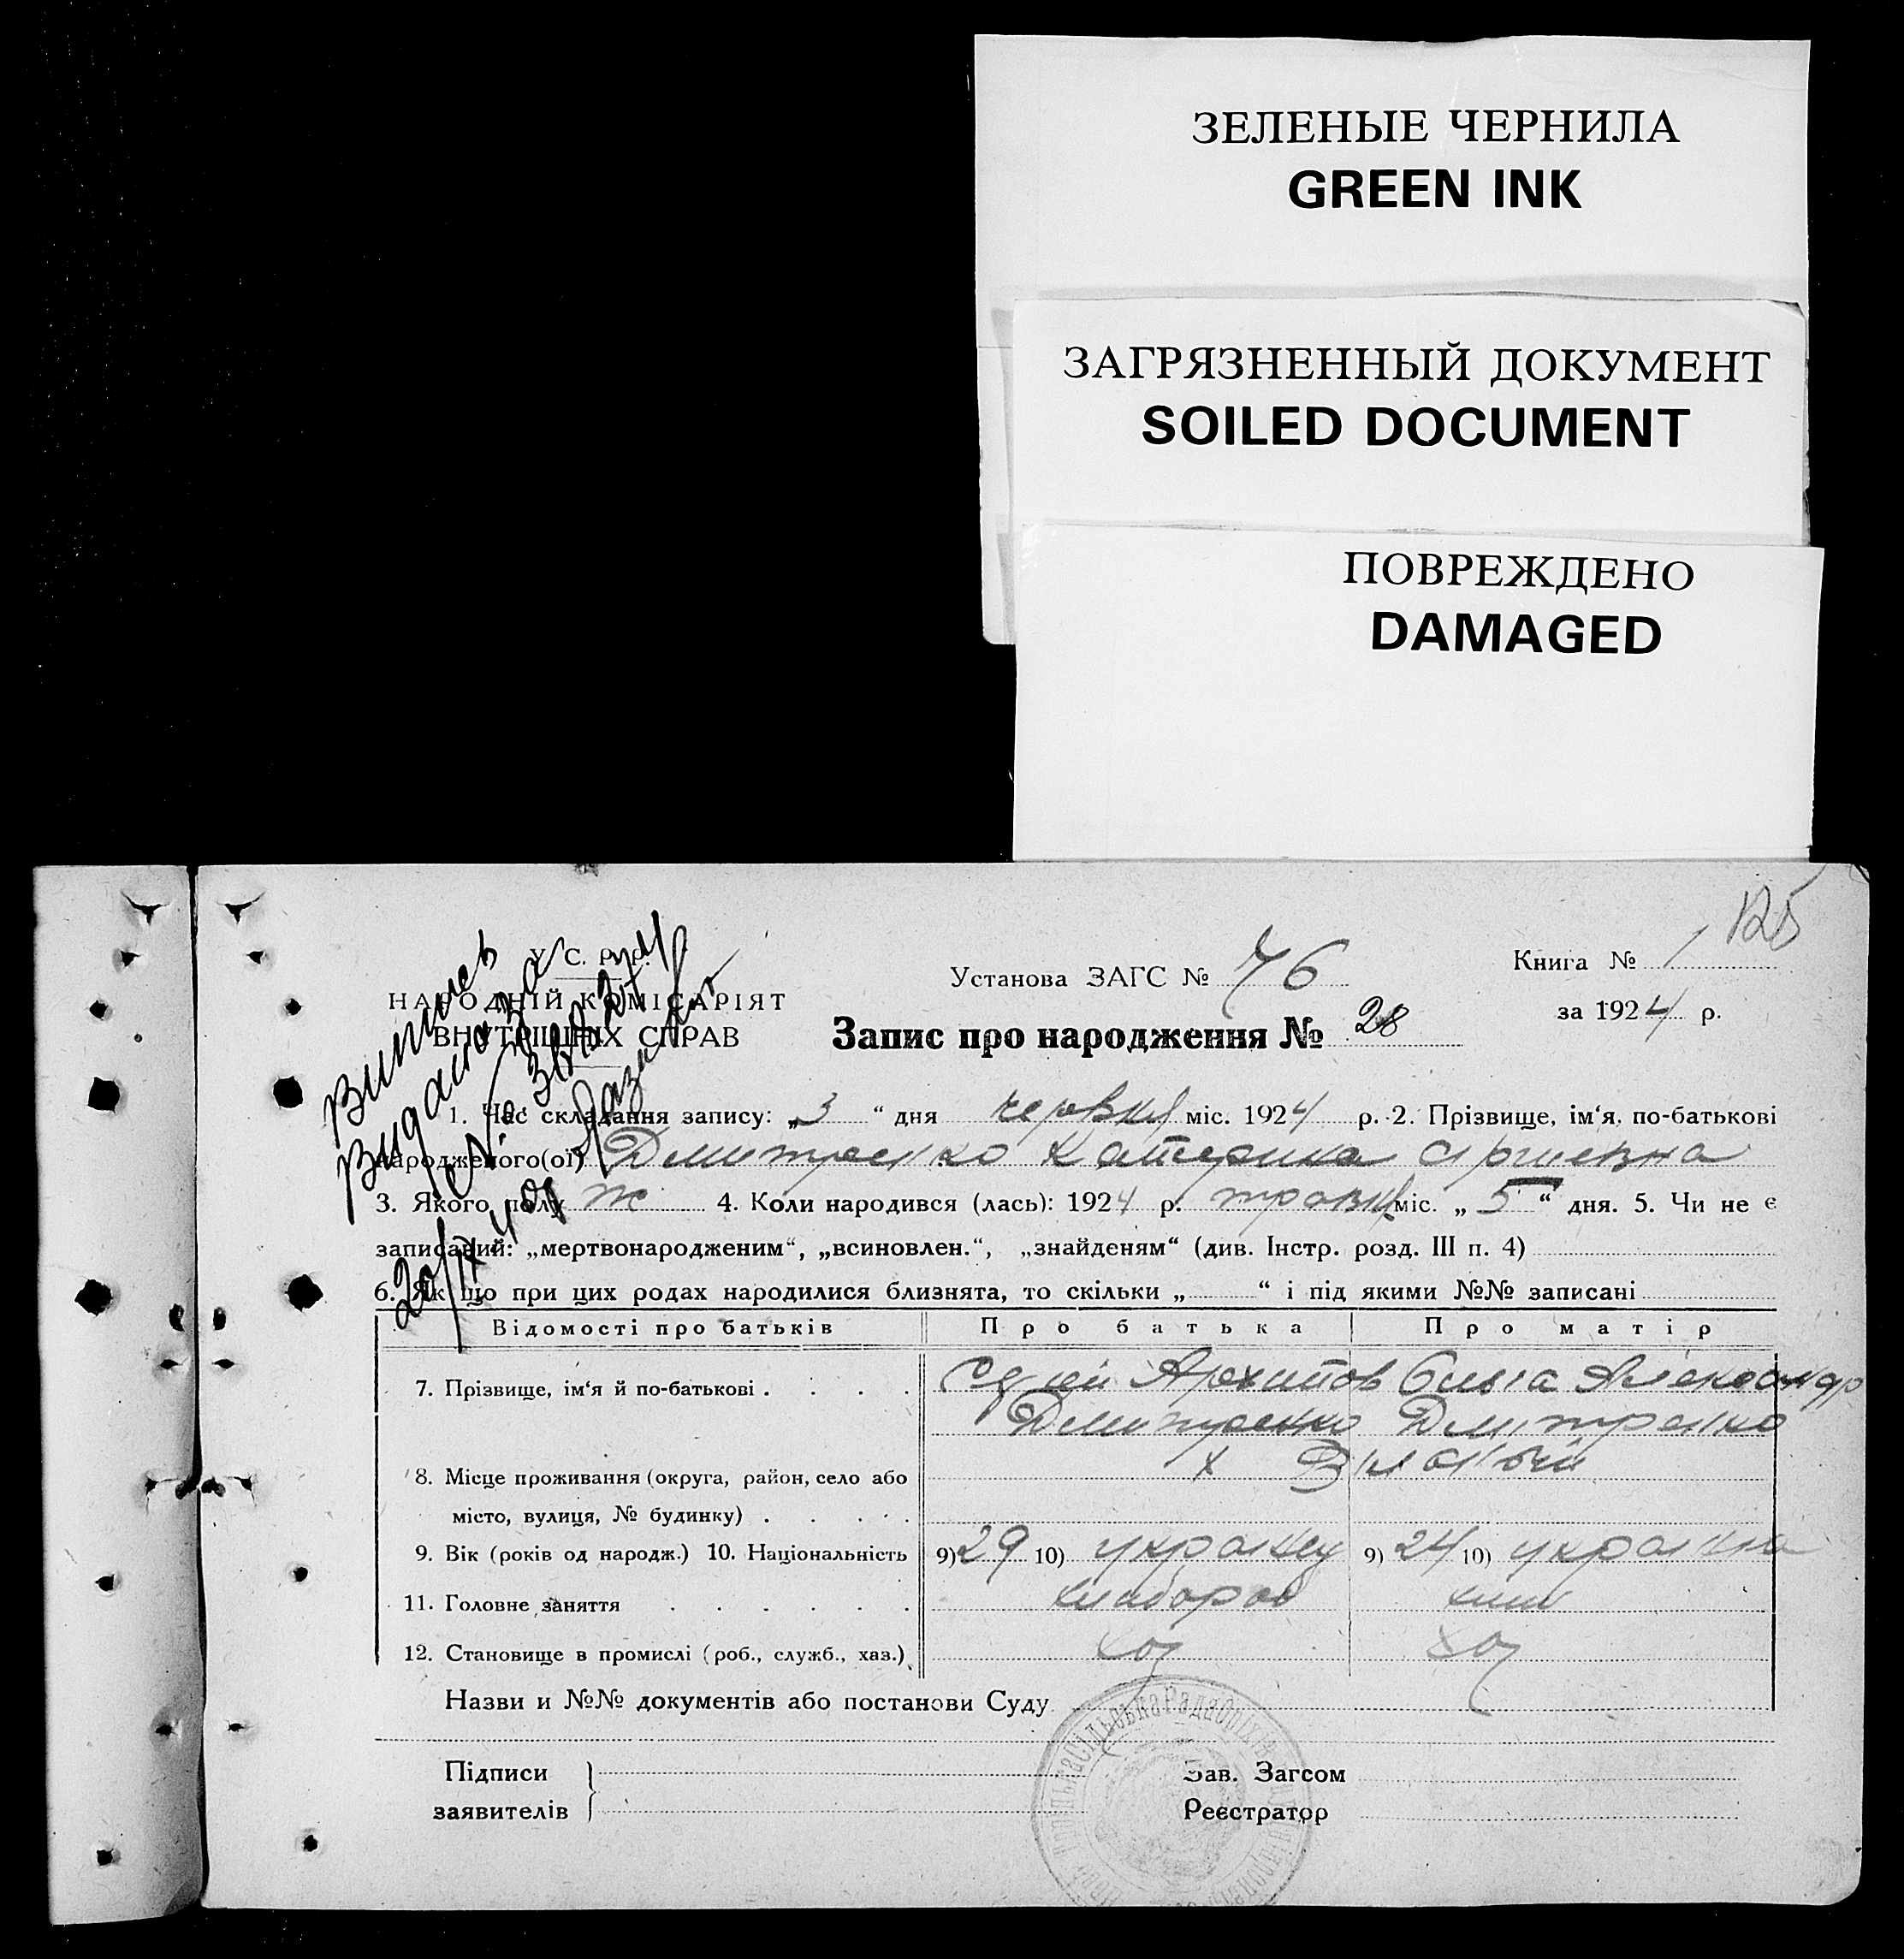 ЗЕЛЕНЫЕ ЧЕРНИЛА
GREEN INK
ЗАГРЯЗНЕННЫЙ ДОКУМЕНТ
SOILED DOCUMENT
ПОВРЕЖДЕНО
DAMAGED
У. С. Р. Р.
НАРОДНІЙ КОМІСАРІЯТ
ВНУТРІШНІХ СПРАВ
Установа ЗАГС № 76
Запис про народження № 28
125
Книга № 1
за 1924 р.
1. Час складання запису: „3“ дня червня міс. 1924 р. 2. Прізвище, ім‘я, по-батькові
народженого(ої) Дмитренко Катерина
3. Якого полу ж 4. Коли народився (лась): 1924 р. травня міс. „5“ дня. 5. Чи не є
записаний: „мертвонародженим“, „всиновлен.“, „знайденям“ (див. Інстр. розд. III п. 4)
6. Як що при цих родах народилися близнята, то скільки „ “ і під якими №№ записані
Відомості про батьків Про батька Про матір
7. Прізвище, ім‘я й по-батькові . . . . Архипов Ольга Александр
Дмитренко Дмитренко
8. Місце проживання (округа, район, село або
місто, вулиця, № будинку) . . . . .
9. Вік (років од народж.) 10. Національність 9) 29 10) українец 9) 24 10) українка
11. Головне заняття . . . . . . хлібороб
12. Становище в промислі (роб., служб., хаз.) хоз хоз
Назви и №№ документів або постанови Суду
Підписи
заявителів
Зав. Загсом
Реєстратор